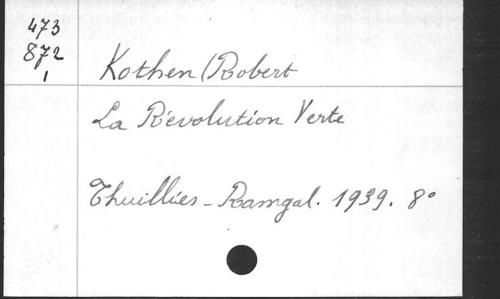 473
872
1
Kothen (Robert
La Révolution Verte
Thuillies - Ramgal. 1939. 8°